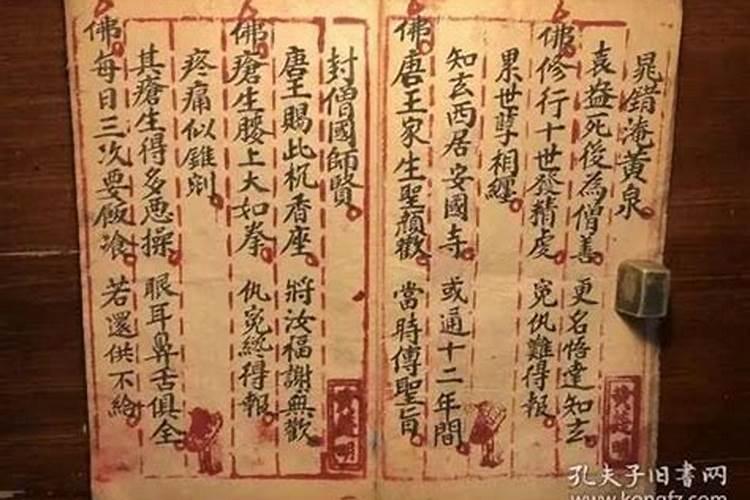 晁錯淹黃泉
袁益死後為僧善 更名悟達知玄
佛修行十世發精虔 冤仇難得報
累世孽相纏
知玄西居安國寺 或通十二年間
佛唐王家生聖顏歡 當時傳聖旨
封僧國師賢
唐王賜此杌香座 將汝福謝無歡
佛瘡生腰上大如拳 仇冤終得報
疼痛似錐剜
其瘡生得多惡操 眼耳鼻舌俱全
佛每日三次要飯飡 若還供不給
孔夫子旧書网
www.kongfz.com